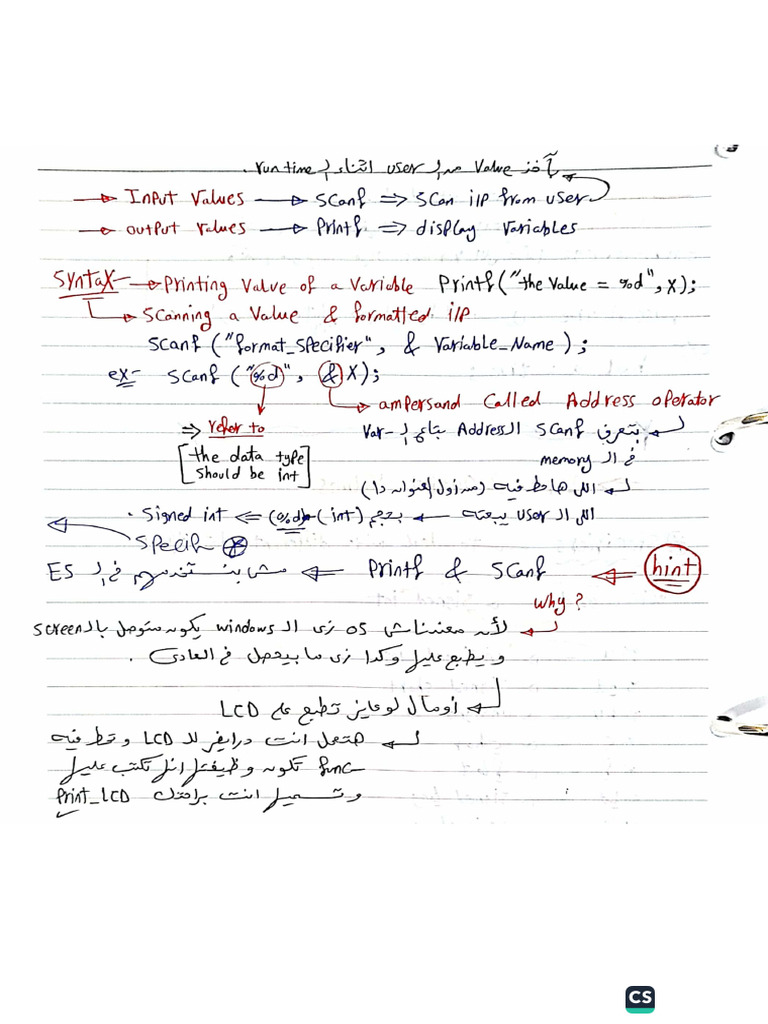 بآخذ Value من ال user اثناء ال run time.
→ Input Values → Scanf ⇒ Scan i/P from user
→ output values → Printf ⇒ display variables
Syntax → Printing Value of a Variable Printf("the Value = %d", X);
→ Scanning a Value & formatted i/P
Scanf ("format_specifier", & Variable_Name);
ex- Scanf ("%d", & X);
→ ampersand Called Address operator
⇒ refer to
[the data type should be int]
بتعرف Scanf ال Address بتاع ال Var-
في ال memory
اللي هاحط فيه (من أول العنوان دا)
اللي ال user يبعته ← بحجم (int) (%d) ⇐ Signed int.
Specifi
hint ← Printf & Scanf ⇐ مش بنستخدمهم في ال ES
why?
لأنه معندناش OS زي ال windows يكون متوصل بال screen
ويطبع عليها وكدا زي ما بيحصل في العادي.
أومال لو عايز تطبع على LCD
هتعمل انت درايفر لل LCD وتحط فيه
func تكون وظيفتها انها تكتب عليها
وتسميها انت براحتك Print_LCD
CS